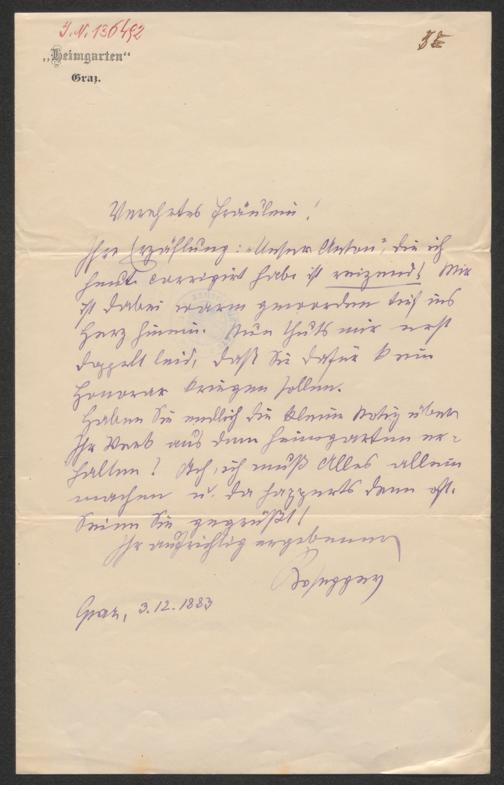 J. N. 136492
„Heimgarten“
Graz.
Verehrtes Fräulein!
Ihre Erzählung: „Unser Anton“, die ich
heute corrigirt habe ist reizend! Mir
ist dabei warm geworden tief ins
Herz hinein. Nun thuts mir erst
doppelt leid, daß Sie dafür kein
Honorar kriegen sollen.
Haben Sie endlich die kleine Notiz über
Ihr Werk aus dem Heimgarten er-
halten? Ach, ich muß Alles allein
machen u. da happerts dann oft.
Seien Sie gegrüßt!
Ihr aufrichtig ergebener
Rosegger
Graz, 3.12.1883